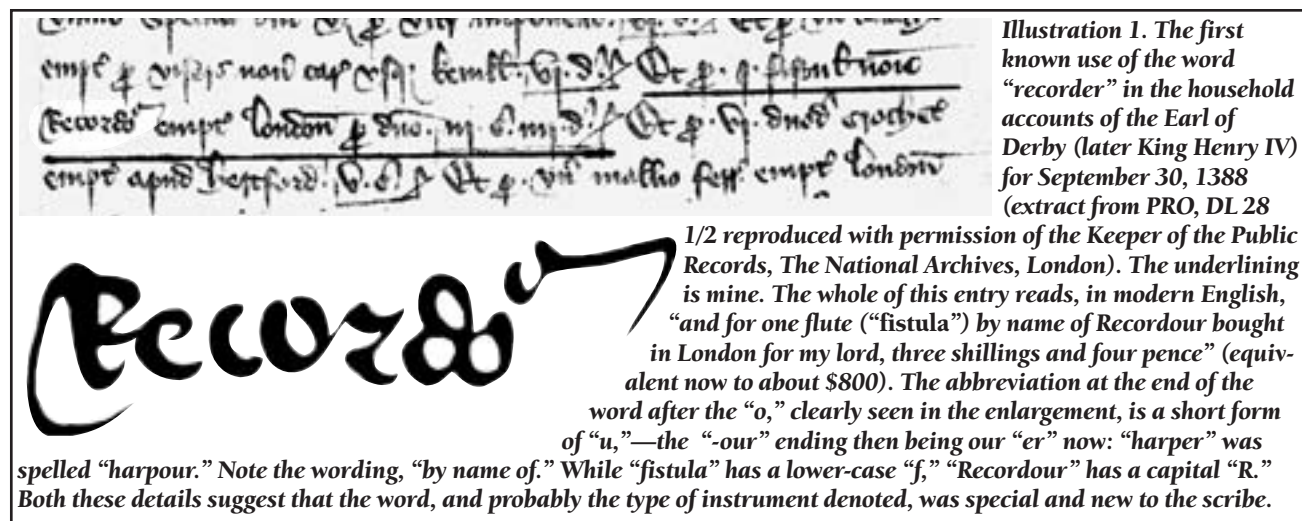 empt p non cap vj. d. Et p. j. noie
Recordo empt london p dno. iij. s. iiij. d. Et p. vj. crochet
empt apud hertford. v. s. Et p. vn mallio ferr empt london
Recordo
Illustration 1. The first
known use of the word
“recorder” in the household
accounts of the Earl of
Derby (later King Henry IV)
for September 30, 1388
(extract from PRO, DL 28
1/2 reproduced with permission of the Keeper of the Public
Records, The National Archives, London). The underlining
is mine. The whole of this entry reads, in modern English,
“and for one flute (“fistula”) by name of Recordour bought
in London for my lord, three shillings and four pence” (equiv-
alent now to about $800). The abbreviation at the end of the
word after the “o,” clearly seen in the enlargement, is a short form
of “u,”—the “-our” ending then being our “er” now: “harper” was
spelled “harpour.” Note the wording, “by name of.” While “fistula” has a lower-case “f,” “Recordour” has a capital “R.”
Both these details suggest that the word, and probably the type of instrument denoted, was special and new to the scribe.